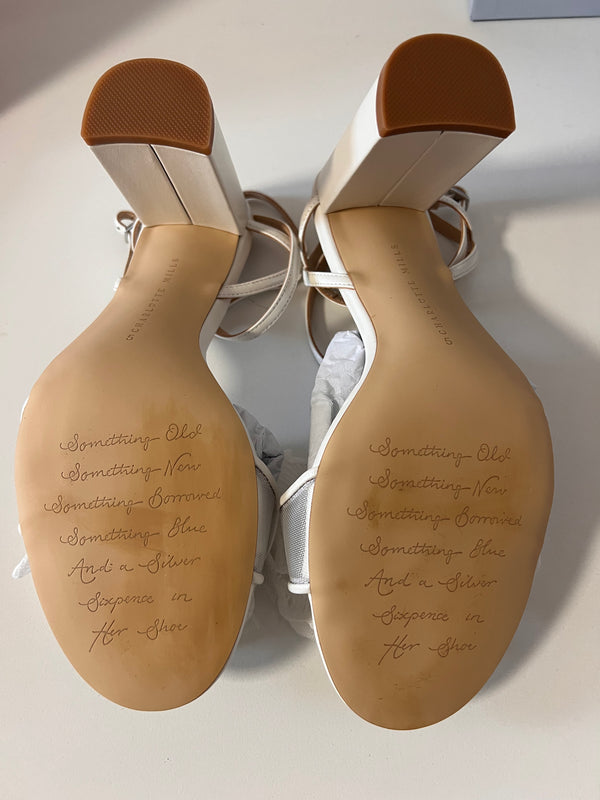 CHARLOTTE MILLS
Something Old
Something New
Something Borrowed
Something Blue
And a Silver
Sixpence in
Her Shoe
CHARLOTTE MILLS
Something Old
Something New
Something Borrowed
Something Blue
And a Silver
Sixpence in
Her Shoe